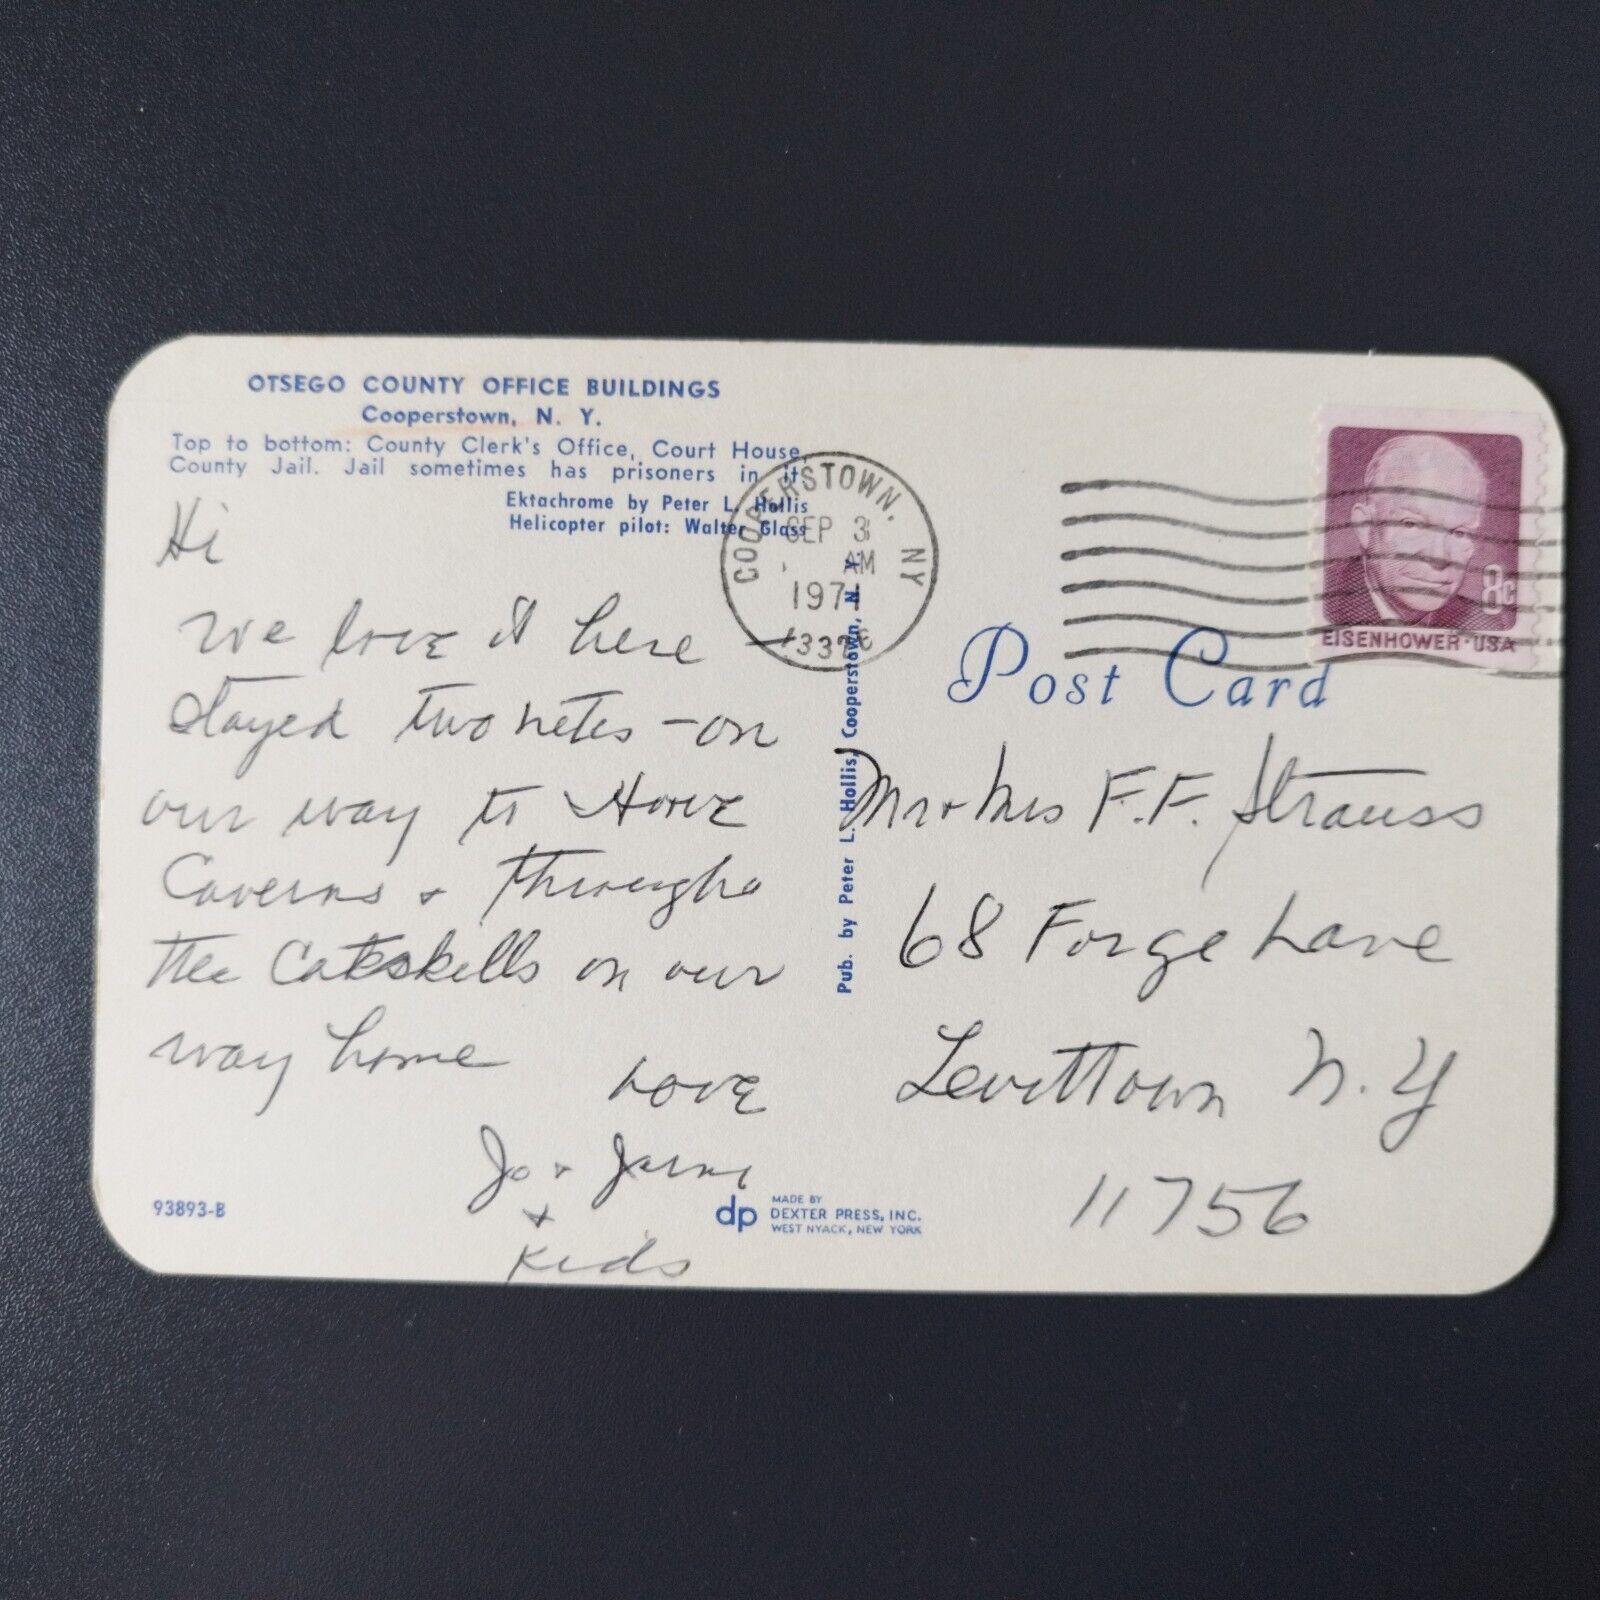 OTSEGO COUNTY OFFICE BUILDINGS
Cooperstown, N. Y.
Top to bottom: County Clerk's Office, Court House,
County Jail. Jail sometimes has prisoners in it.
Ektachrome by Peter L. Hollis
Helicopter pilot: Walter Glass
Hi
We love it here —
stayed two nites — on
our way to Howe
Caverns + through
the Catskills on our
way home
Love
Jo +
+
Kids
93893-B
dp
MADE BY
DEXTER PRESS, INC.
WEST NYACK, NEW YORK
Pub. by Peter L. Hollis, Cooperstown, N. Y.
COOPERSTOWN, NY
SEP 3
AM
1971
13326
8c
EISENHOWER·USA
Post Card
Mr + Mrs F.F. Strauss
68 Forge Lane
Levittown N.Y
11756